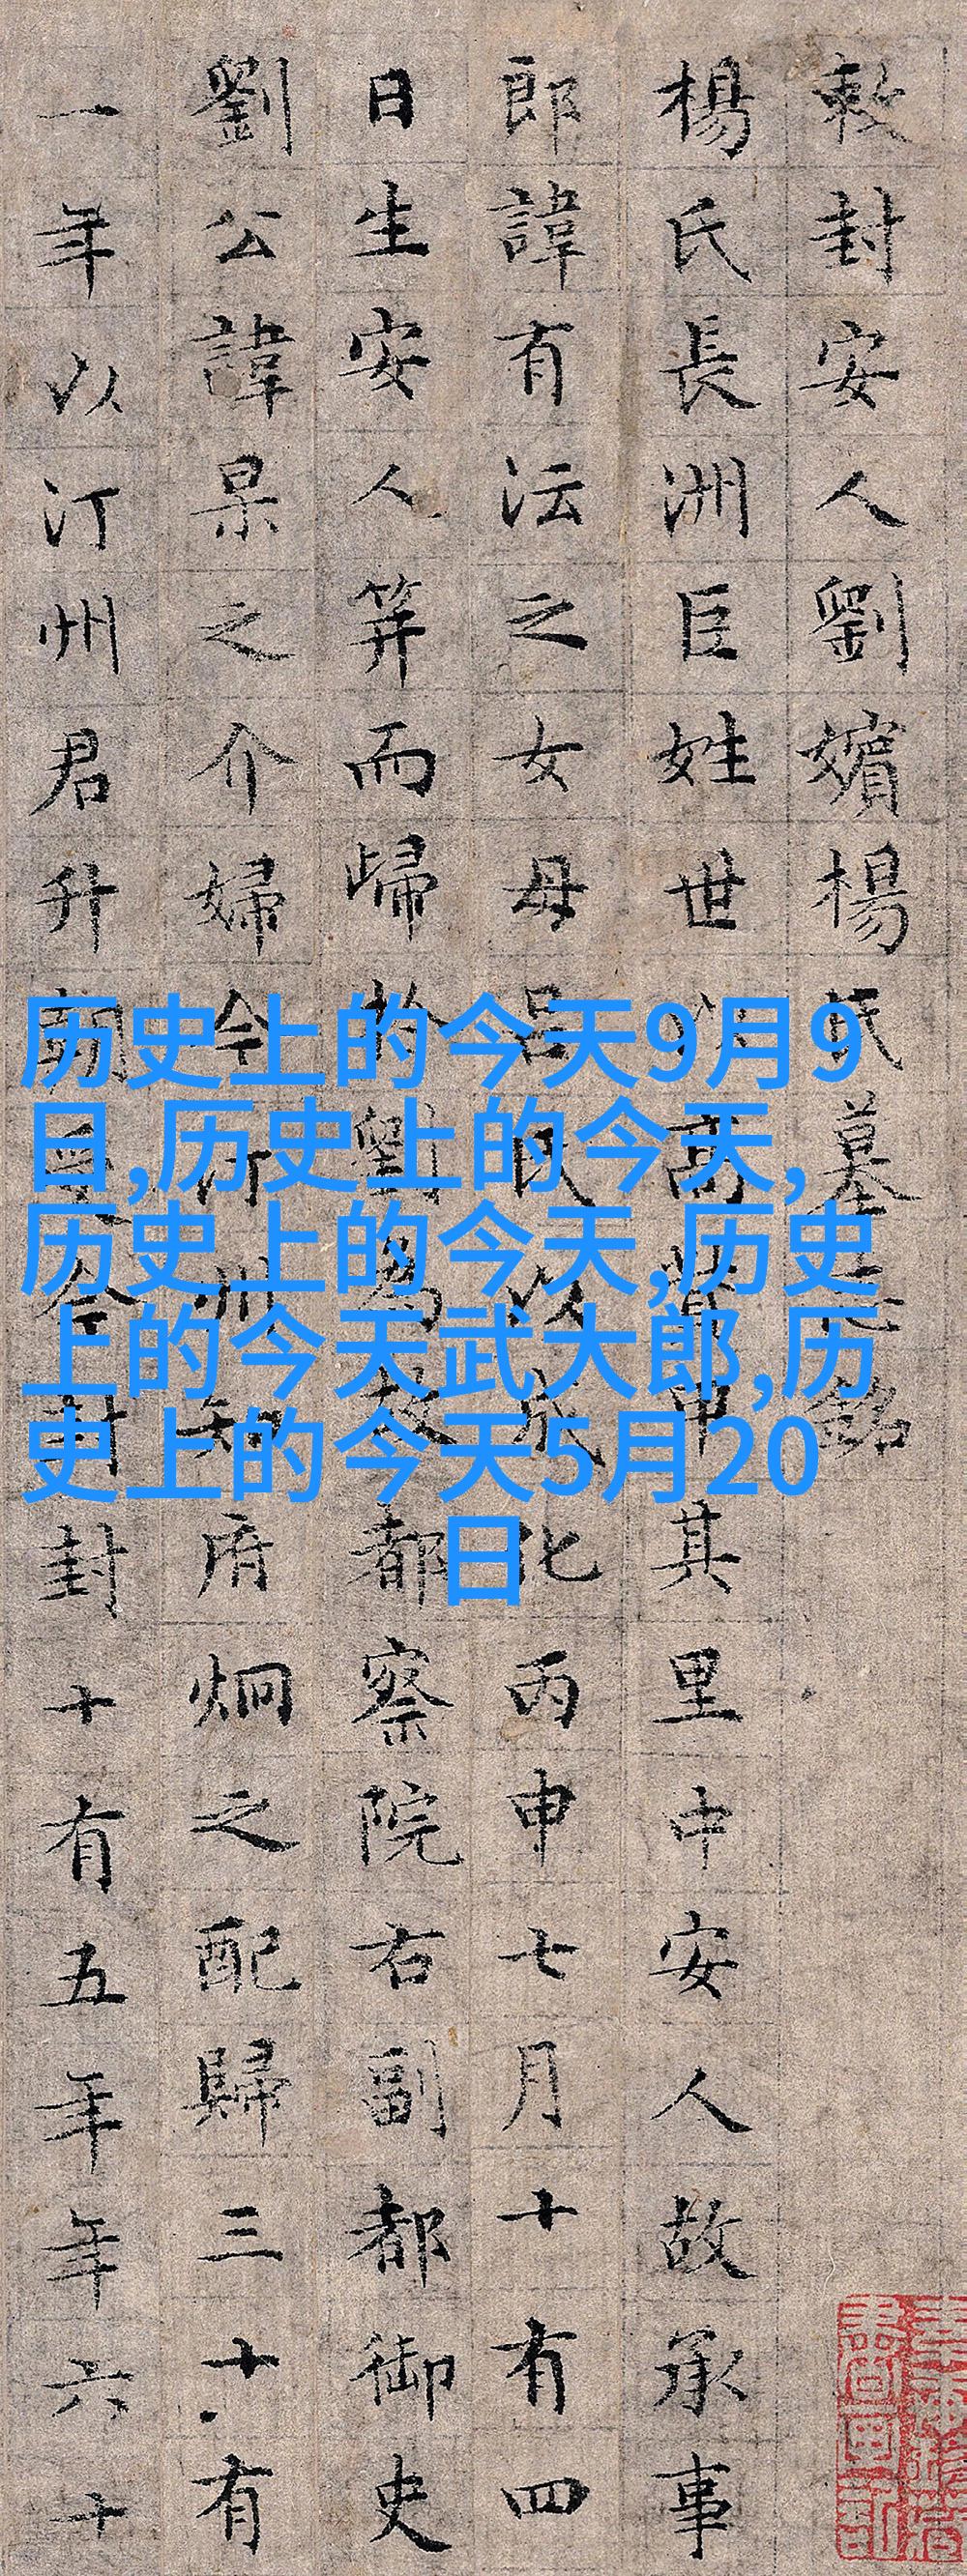 敕封安人劉嬪楊氏墓銘
楊氏長洲巨姓世高甲其里中安人故承事
郎諱有沄之女母呂氏以成化丙申七月十有四
日生安人笄而歸於劉為故都察院右副都御史
劉公諱杲之介婦今汀州知府炯之配歸三十有
一年以汀州君升朝令封封十有五年年六十
历史上的今天9月9
日,历史上的今天,
历史上的今天,历史
上的今天武大郎,历
史上的今天5月20
日